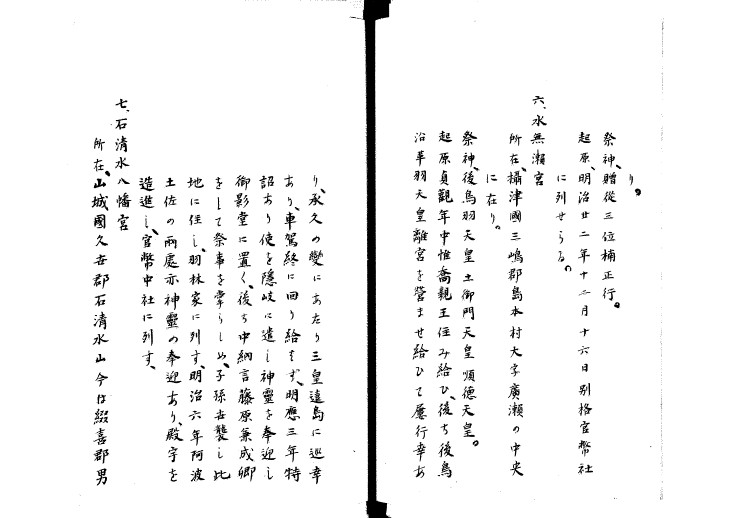 り。
祭神、贈從三位楠正行。
起原、明治廿二年十二月十六日別格官幣社
に列せらる。
六、水無瀬宮
所在、攝津國三嶋郡島本村大字廣瀬の中央
に在り。
祭神、後鳥羽天皇土御門天皇順德天皇。
起原貞觀年中惟喬親王住み給ひ、後ち後鳥
沿革羽天皇離宮を營ませ給ひて屢行幸あ
り、永久の變にあたり三皇遠島に巡幸
あり、車駕終に回り給はず、明應三年特
詔あり使を隱岐に遣し神靈を奉迎し
御影堂に置く、後ち中納言藤原兼成卿
をして祭事を掌らしめ、子孫世襲し此
地に住し、羽林家に列す、明治六年阿波
土佐の兩處亦神靈の奉迎あり、殿宇を
造進し、官幣中社に列す、
七、石清水八幡宮
所在、山城國久世郡石清水山今は綴喜郡男